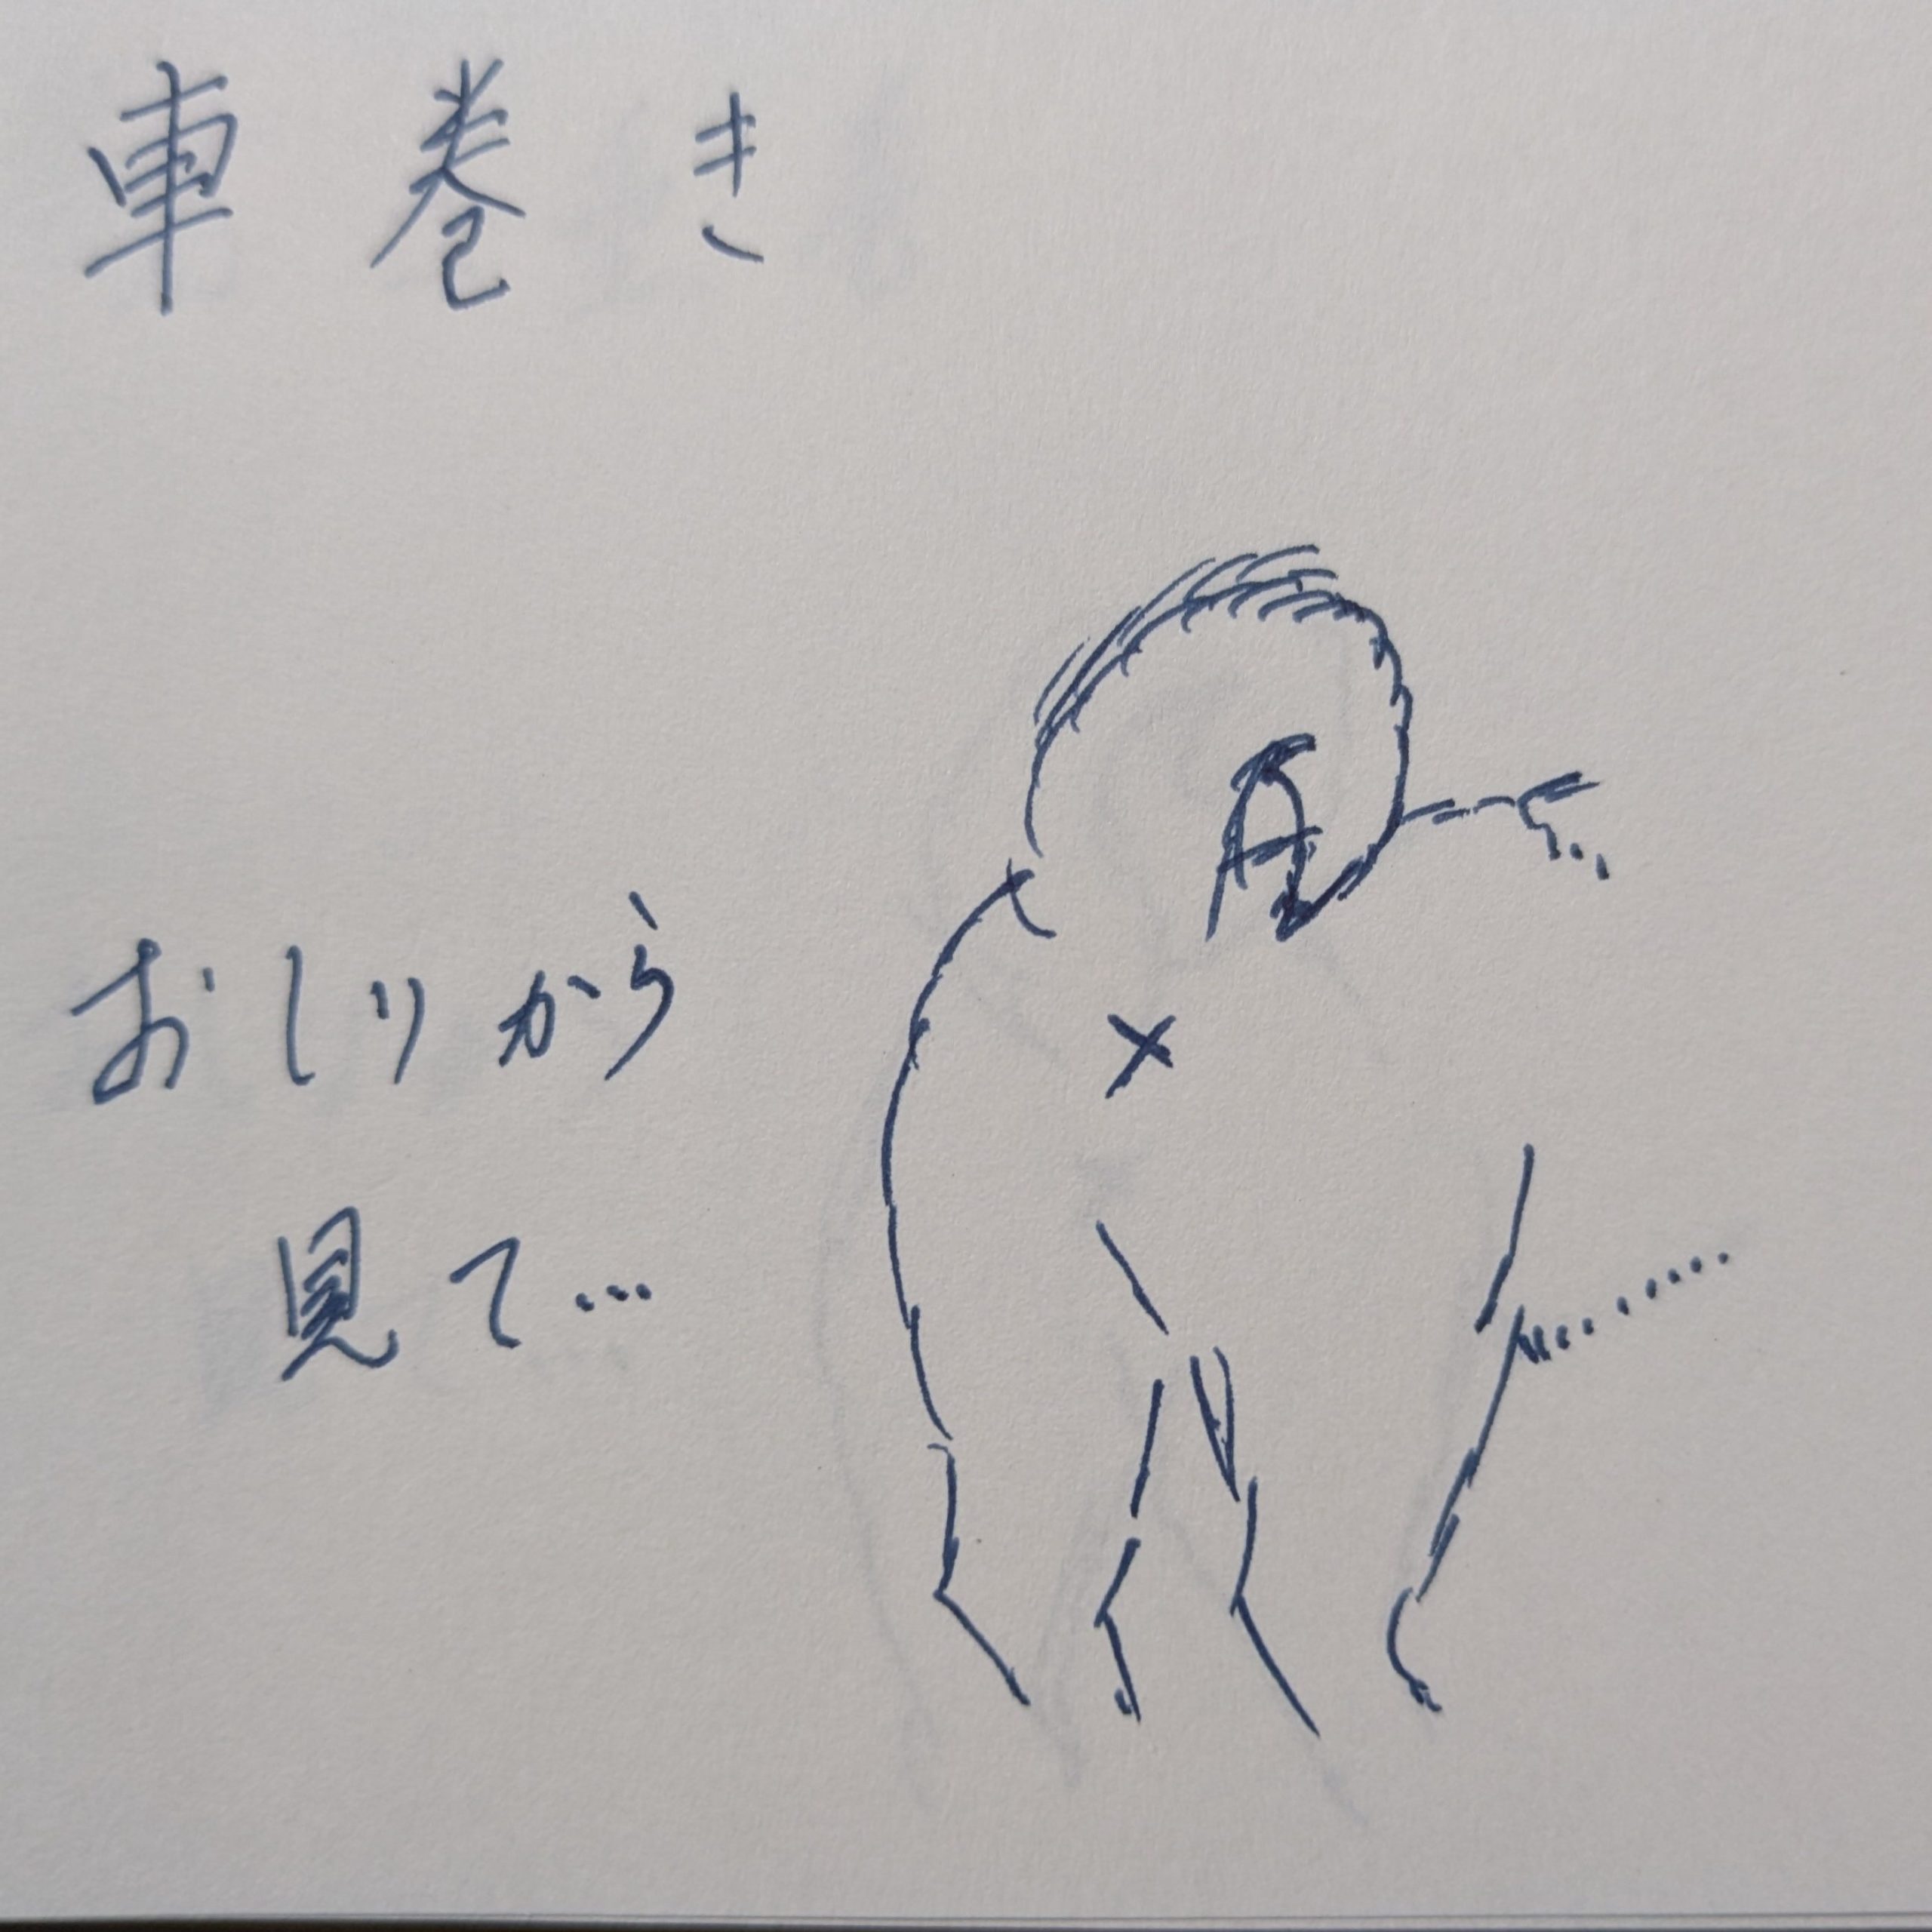 車巻き
おしりから
見て…